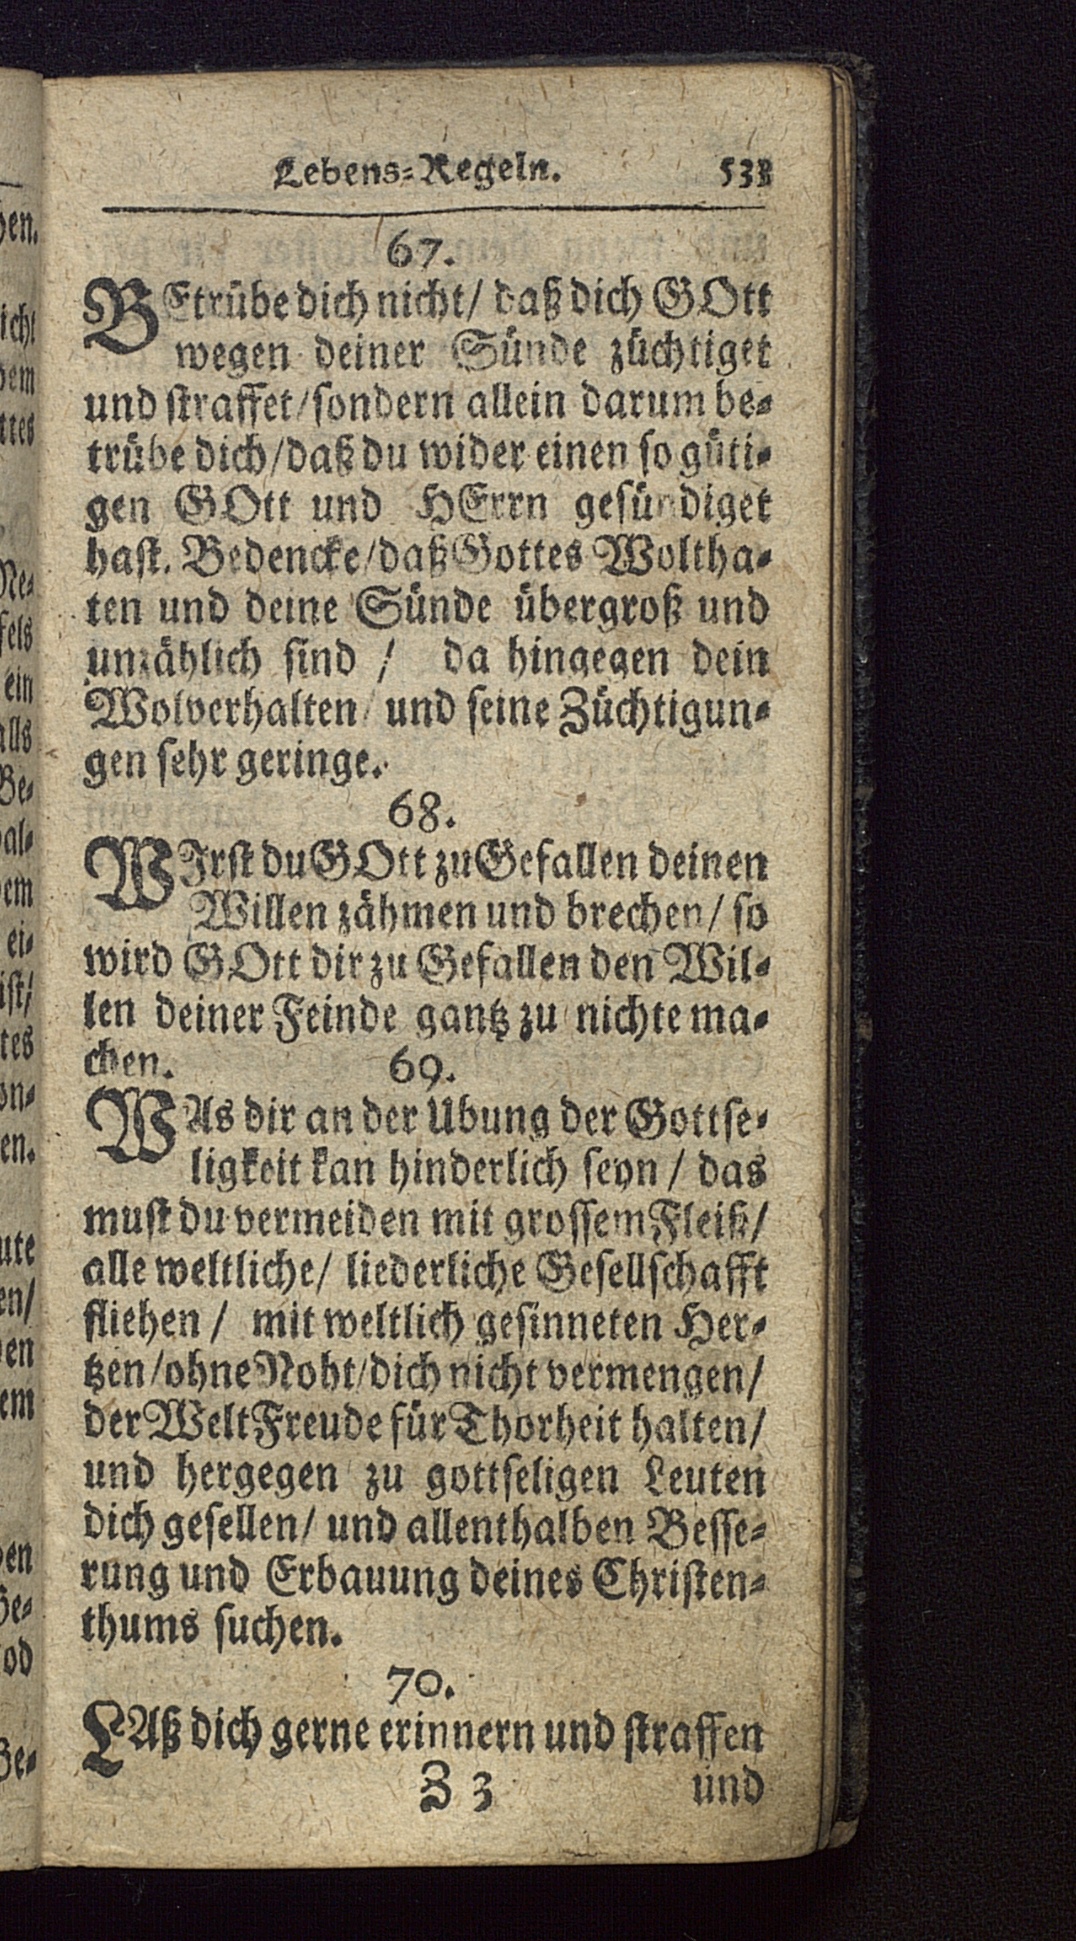 Lebens-Regeln. 533
67.
BEtrübe dich nicht/ daß dich GOtt
wegen deiner Sünde züchtiget
und straffet/sondern allein darum be-
trübe dich/daß du wider einen so güti-
gen GOtt und HErrn gesündiget
hast. Bedencke/daß Gottes Woltha-
ten und deine Sünde übergroß und
unzählich sind / da hingegen dein
Wolverhalten/ und seine Züchtigun-
gen sehr geringe.
68.
WIrst du GOtt zu Gefallen deinen
Willen zähmen und brechen/ so
wird GOtt dir zu Gefallen den Wil-
len deiner Feinde gantz zu nichte ma-
chen. 69.
WAs dir an der Ubung der Gottse-
ligkeit kan hinderlich seyn / das
must du vermeiden mit grossem Fleiß/
alle weltliche/ liederliche Gesellschafft
fliehen / mit weltlich gesinneten Her-
tzen/ohne Noht/dich nicht vermengen/
der Welt Freude für Thorheit halten/
und hergegen zu gottseligen Leuten
dich gesellen/ und allenthalben Besse-
rung und Erbauung deines Christen-
thums suchen.
70.
LAß dich gerne erinnern und straffen
Z 3 und